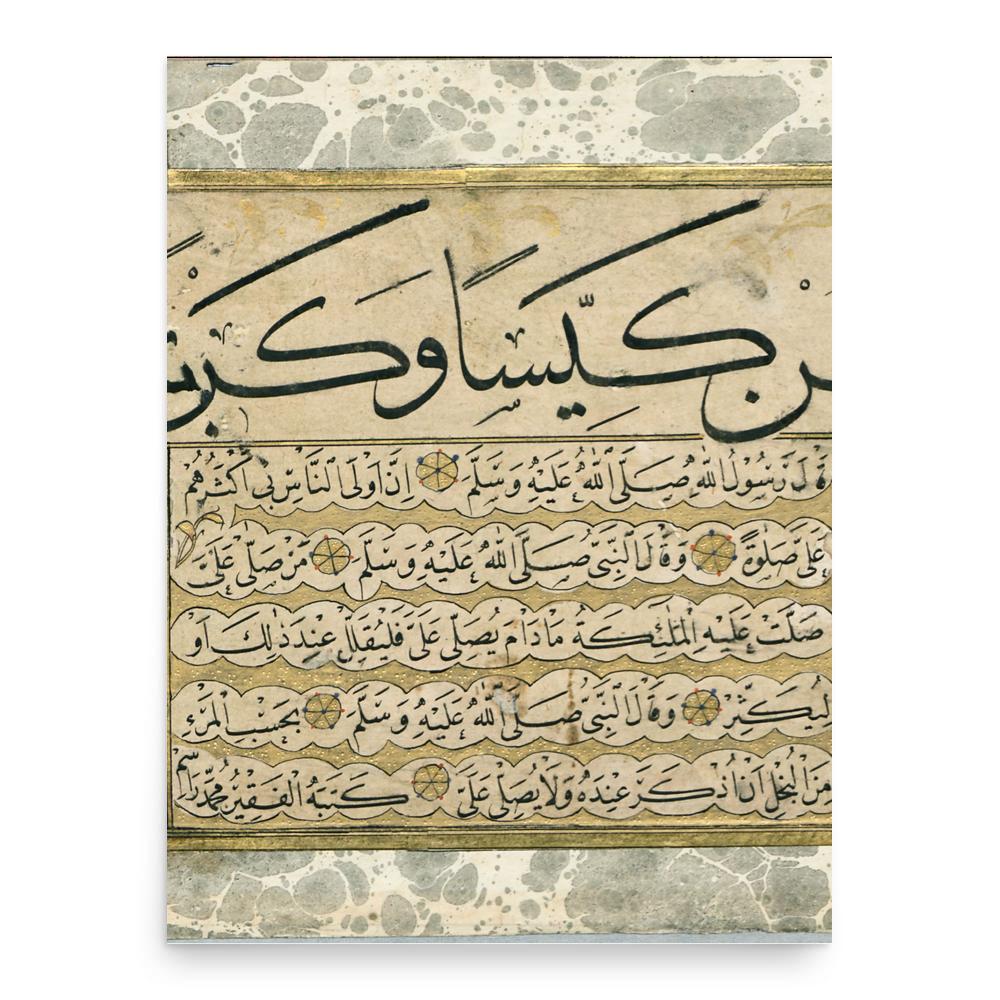 كَيِّسًا وَ
قَالَ رَسُولُ اللّٰهِ صَلَّى اللّٰهُ عَلَيْهِ وَسَلَّمَ اِنَّ اَوْلَى النَّاسِ بِى اَكْثَرُهُمْ
عَلَىَّ صَلٰوةً وَقَالَ النَّبِىُّ صَلَّى اللّٰهُ عَلَيْهِ وَسَلَّمَ مَنْ صَلَّى عَلَىَّ
صَلَّتْ عَلَيْهِ الْمَلٰئِكَةُ مَادَامَ يُصَلِّى عَلَىَّ فَلْيُقَلِّلْ عِنْدَ ذٰلِكَ اَوْ
لِيُكَثِّرْ وَقَالَ النَّبِىُّ صَلَّى اللّٰهُ عَلَيْهِ وَسَلَّمَ بِحَسْبِ الْمَرْءِ
مِنَ الْبُخْلِ اَنْ اُذْكَرَ عِنْدَهُ وَلَا يُصَلِّى عَلَىَّ كَتَبَهُ الْفَقِيْرُ مُحَمَّدْ رَاسِمْ